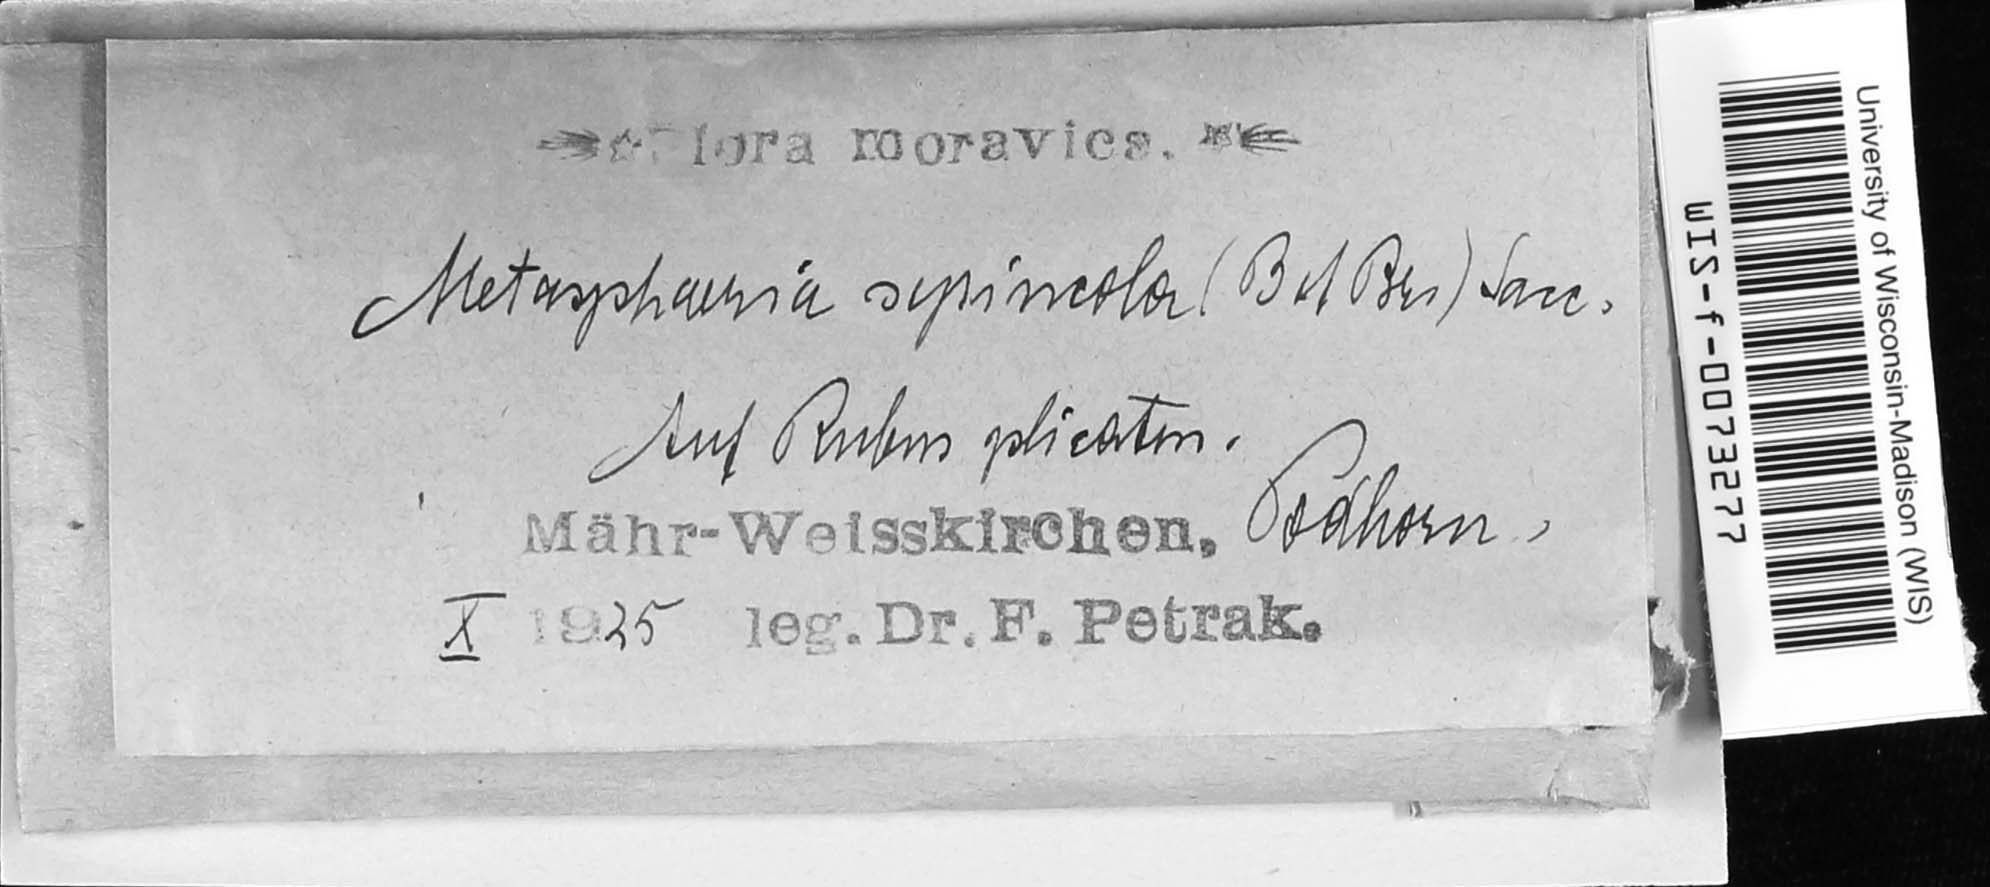 Flora moravica.
Metasphaeria sepincola (B et Br) Sacc.
Auf Rubus plicatus.
Mähr-Weisskirchen, Podhorn,
X 1925 leg. Dr. F. Petrak.
University of Wisconsin-Madison (WIS)
WIS-f-0073277